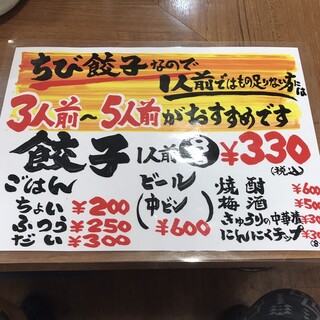 ちび餃子なので
1人前ではもの足りない方には
3人前〜5人前がおすすめです
餃子 1人前 ¥330
(税込)
ごはん
ちょい ¥200
ふつう ¥250
だい ¥300
ビール
(中ビン)
¥600
焼酎 ¥600
梅酒 ¥500
きゅうりの中華漬 ¥30
にんにくチップ ¥30